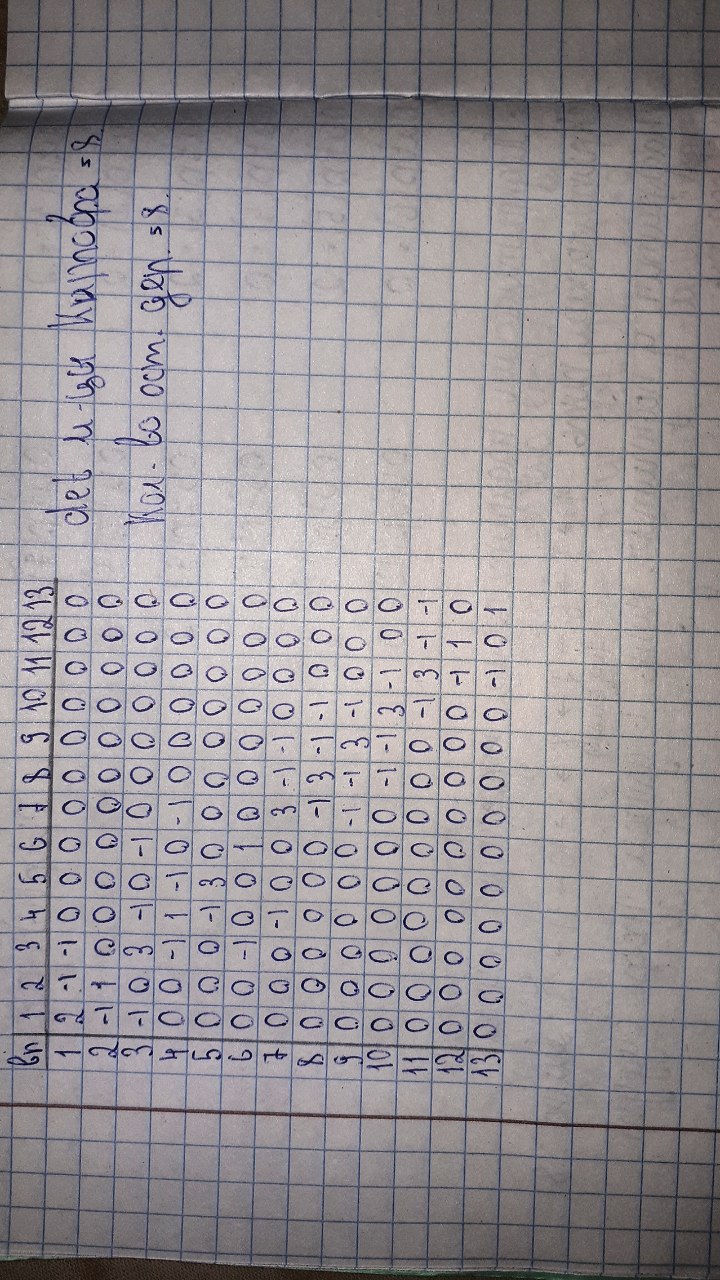 вп 1 2 3 4 5 6 7 8 9 10 11 12 13
1 2 -1 -1 0 0 0 0 0 0 0 0 0 0
2 -1 1 0 0 0 0 0 0 0 0 0 0 0
3 -1 0 3 -1 0 -1 0 0 0 0 0 0 0
4 0 0 -1 1 -1 0 -1 0 0 0 0 0 0
5 0 0 0 -1 3 0 0 0 0 0 0 0 0
6 0 0 -1 0 0 1 0 0 0 0 0 0 0
7 0 0 0 -1 0 0 3 -1 -1 0 0 0 0
8 0 0 0 0 0 0 -1 3 -1 -1 0 0 0
9 0 0 0 0 0 0 -1 -1 3 -1 0 0 0
10 0 0 0 0 0 0 0 -1 -1 3 -1 0 0
11 0 0 0 0 0 0 0 0 0 -1 3 -1 -1
12 0 0 0 0 0 0 0 0 0 0 -1 1 0
13 0 0 0 0 0 0 0 0 0 0 -1 0 1
det м-цы Кирхгофа = 8
Кол-во ост. дер. = 8.